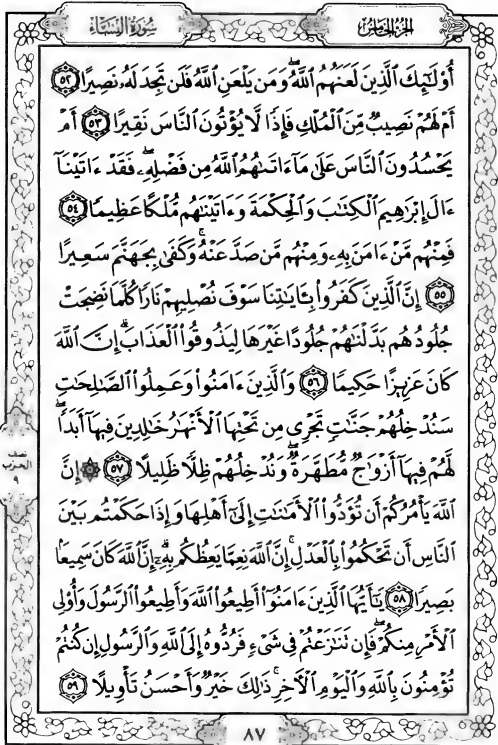 سُورَةُ النِّسَاءِ
الجُزْءُ الخَامِسُ
أُوْلَٰٓئِكَ ٱلَّذِينَ لَعَنَهُمُ ٱللَّهُۖ وَمَن يَلْعَنِ ٱللَّهُ فَلَن تَجِدَ لَهُۥ نَصِيرًا ٥٢
أَمْ لَهُمْ نَصِيبٌ مِّنَ ٱلْمُلْكِ فَإِذًا لَّا يُؤْتُونَ ٱلنَّاسَ نَقِيرًا ٥٣ أَمْ
يَحْسُدُونَ ٱلنَّاسَ عَلَىٰ مَآ ءَاتَىٰهُمُ ٱللَّهُ مِن فَضْلِهِۦۖ فَقَدْ ءَاتَيْنَآ
ءَالَ إِبْرَٰهِيمَ ٱلْكِتَٰبَ وَٱلْحِكْمَةَ وَءَاتَيْنَٰهُم مُّلْكًا عَظِيمًا ٥٤
فَمِنْهُم مَّنْ ءَامَنَ بِهِۦ وَمِنْهُم مَّن صَدَّ عَنْهُۚ وَكَفَىٰ بِجَهَنَّمَ سَعِيرًا
٥٥ إِنَّ ٱلَّذِينَ كَفَرُوا۟ بِـَٔايَٰتِنَا سَوْفَ نُصْلِيهِمْ نَارًا كُلَّمَا نَضِجَتْ
جُلُودُهُم بَدَّلْنَٰهُمْ جُلُودًا غَيْرَهَا لِيَذُوقُوا۟ ٱلْعَذَابَۗ إِنَّ ٱللَّهَ
كَانَ عَزِيزًا حَكِيمًا ٥٦ وَٱلَّذِينَ ءَامَنُوا۟ وَعَمِلُوا۟ ٱلصَّٰلِحَٰتِ
سَنُدْخِلُهُمْ جَنَّٰتٍ تَجْرِى مِن تَحْتِهَا ٱلْأَنْهَٰرُ خَٰلِدِينَ فِيهَآ أَبَدًاۖ
لَّهُمْ فِيهَآ أَزْوَٰجٌ مُّطَهَّرَةٌۖ وَنُدْخِلُهُمْ ظِلًّا ظَلِيلًا ٥٧ ۞ إِنَّ
ٱللَّهَ يَأْمُرُكُمْ أَن تُؤَدُّوا۟ ٱلْأَمَٰنَٰتِ إِلَىٰٓ أَهْلِهَا وَإِذَا حَكَمْتُم بَيْنَ
ٱلنَّاسِ أَن تَحْكُمُوا۟ بِٱلْعَدْلِۚ إِنَّ ٱللَّهَ نِعِمَّا يَعِظُكُم بِهِۦٓۗ إِنَّ ٱللَّهَ كَانَ سَمِيعًۢا
بَصِيرًا ٥٨ يَٰٓأَيُّهَا ٱلَّذِينَ ءَامَنُوٓا۟ أَطِيعُوا۟ ٱللَّهَ وَأَطِيعُوا۟ ٱلرَّسُولَ وَأُو۟لِى
ٱلْأَمْرِ مِنكُمْۖ فَإِن تَنَٰزَعْتُمْ فِى شَىْءٍ فَرُدُّوهُ إِلَى ٱللَّهِ وَٱلرَّسُولِ إِن كُنتُمْ
تُؤْمِنُونَ بِٱللَّهِ وَٱلْيَوْمِ ٱلْءَاخِرِۚ ذَٰلِكَ خَيْرٌ وَأَحْسَنُ تَأْوِيلًا ٥٩
نصف
الحزب
٩
٨٧